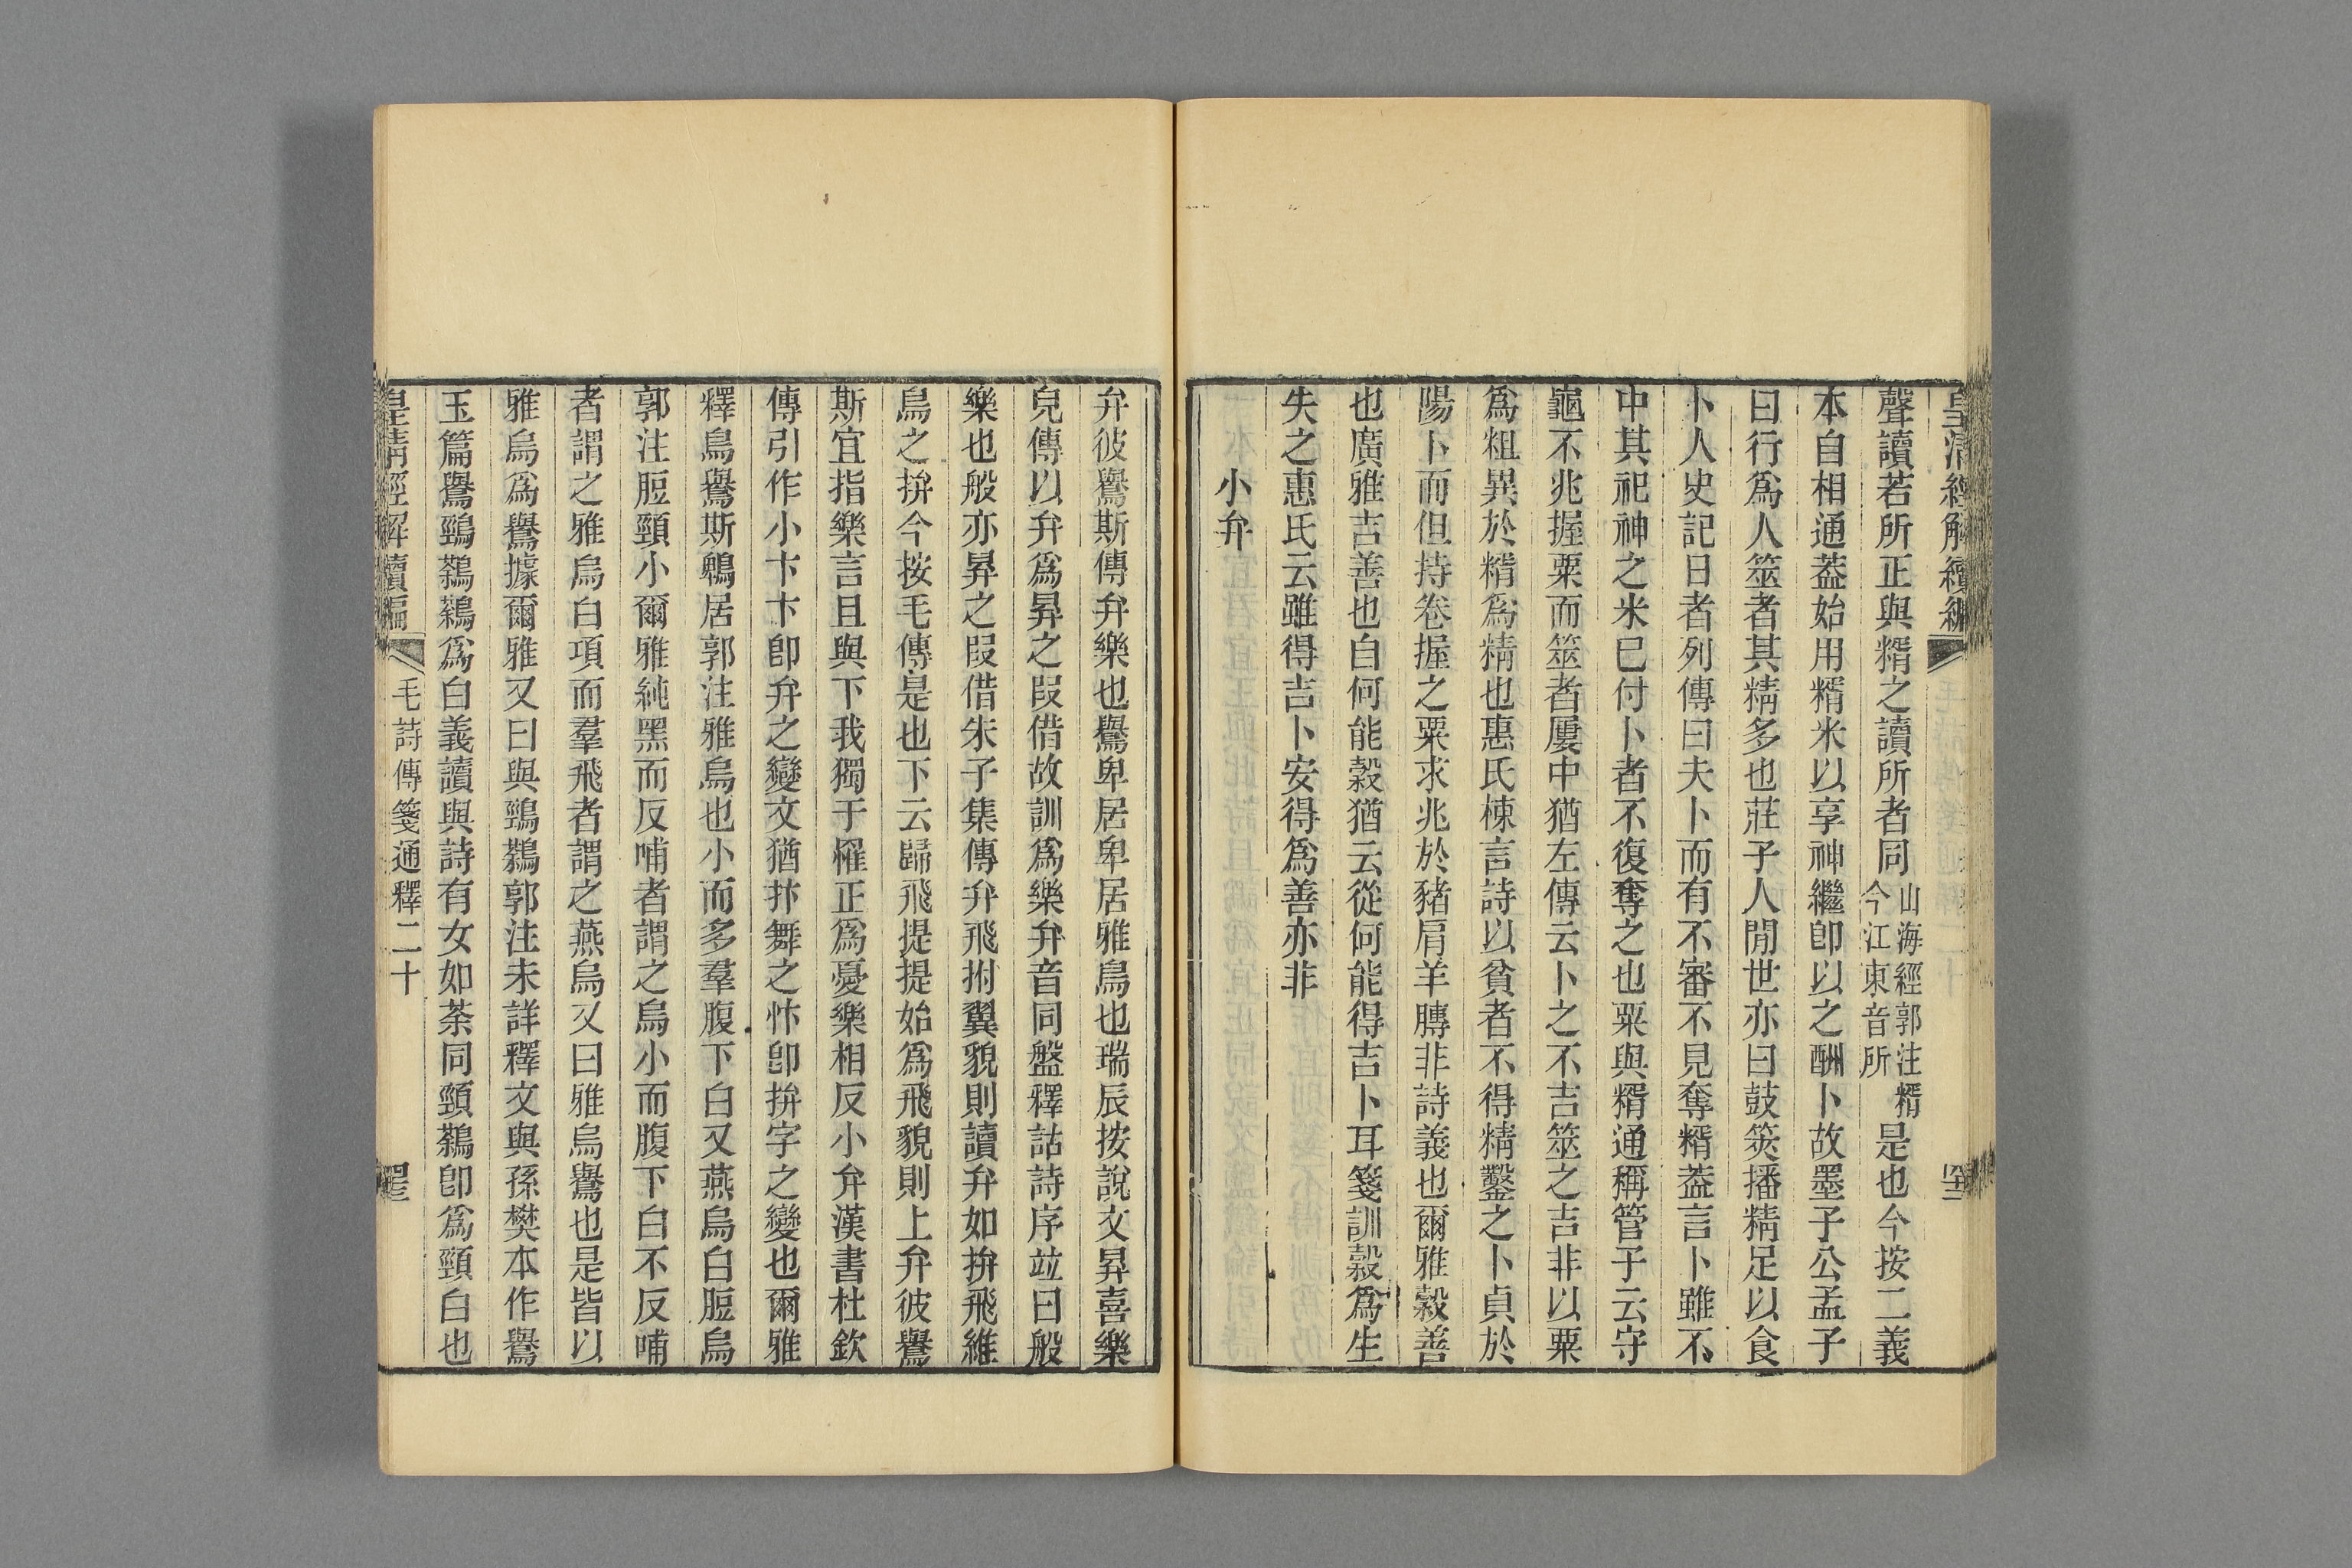 皇清經解續編
聲讀若所正與糈之讀所者同山海經郭注糈今江東音所是也今按二義
本自相通葢始用糈米以享神繼卽以之酬卜故墨子公孟子
曰行爲人筮者其精多也莊子人閒世亦曰鼓筴播精足以食
卜人史記日者列傳曰夫卜而有不審不見奪糈葢言卜雖不
中其祀神之米已付卜者不復奪之也粟與糈通稱管子云守
龜不兆握粟而筮者屢中猶左傳云卜之不吉筮之吉非以粟
爲粗異於糈爲精也惠氏棟言詩以貧者不得精鑿之卜貞於
陽卜而但持卷握之粟求兆於豬肩羊膊非詩義也爾雅穀善
也廣雅吉善也自何能穀猶云從何能得吉卜耳箋訓穀爲生
失之惠氏云雖得吉卜安得爲善亦非
小弁
弁彼鸒斯傳弁樂也鸒卑居卑居雅烏也瑞辰按說文昪喜樂
皃傳以弁爲昪之叚借故訓爲樂弁音同盤釋詁詩序竝曰般
樂也般亦昪之叚借朱子集傳弁飛拊翼貌則讀弁如拚飛維
鳥之拚今按毛傳是也下云歸飛提提始爲飛貌則上弁彼鸒
斯宜指樂言且與下我獨于罹正爲憂樂相反小弁漢書杜欽
傳引作小卞卞卽弁之變文猶抃舞之抃卽拚字之變也爾雅
釋鳥鸒斯鵯居郭注雅烏也小而多羣腹下白又燕烏白脰烏
郭注脰頸小爾雅純黑而反哺者謂之烏小而腹下白不反哺
者謂之雅烏白項而羣飛者謂之燕烏又曰雅烏鸒也是皆以
雅烏爲鸒據爾雅又曰與鵛鶨郭注未詳釋文與孫樊本作鸒
玉篇鸒鵛鶨鶨爲白義讀與詩有女如荼同頸鶨卽爲頸白也
皇清經解續編
毛詩傳箋通釋二十